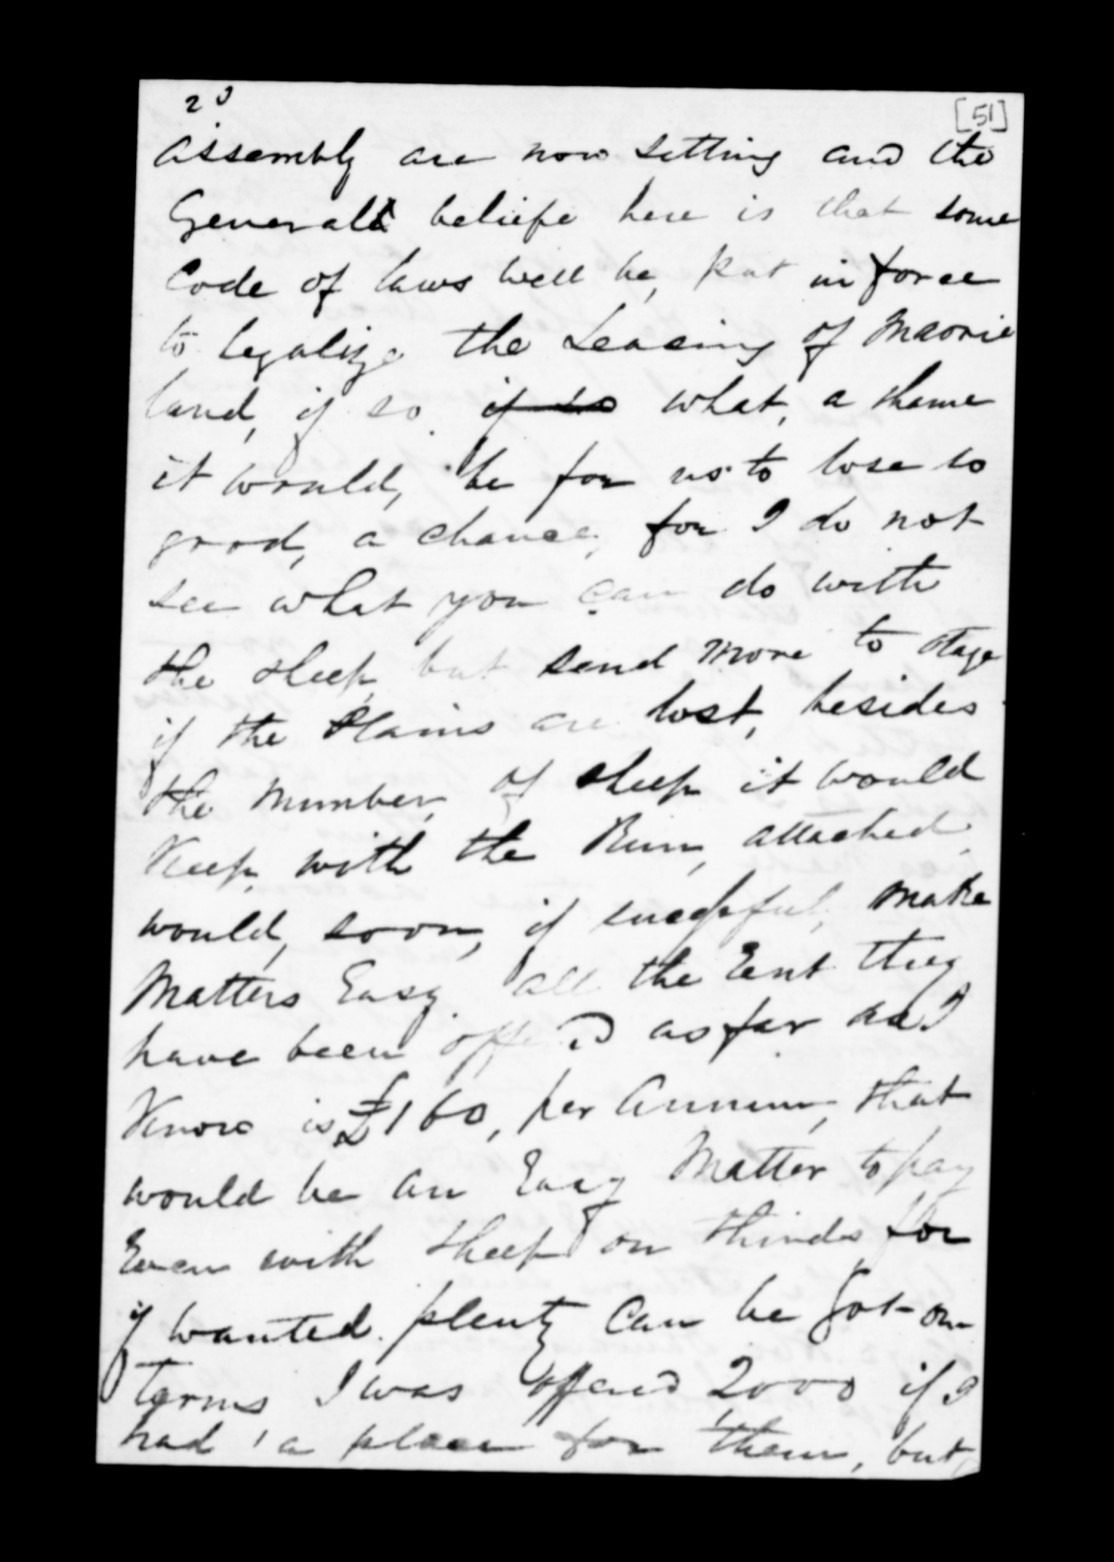 2 d
[51]
assembly are now setting and the
Generall beliefe here is that some
Code of laws will be, put in force
to legalize the Leasing of Maorie
land, if so if so what, a shame
it would, be for us to lose so
good, a chance, for I do not
see what you can do with
the sheep but send more to stage
if the Plains are lost, besides
the number, of sheep it would
Keep, with the Run, attached,
would, soon, if sucessful, make
Matters Easy. all the Rent they
have been offerd as far as I
Know is £160, per Annum, that
would be an Easy Matter to pay
Even with sheep on thirds for
if wanted. plenty can be got on
terms I was offerd 2000 if I
had a place for them, but,